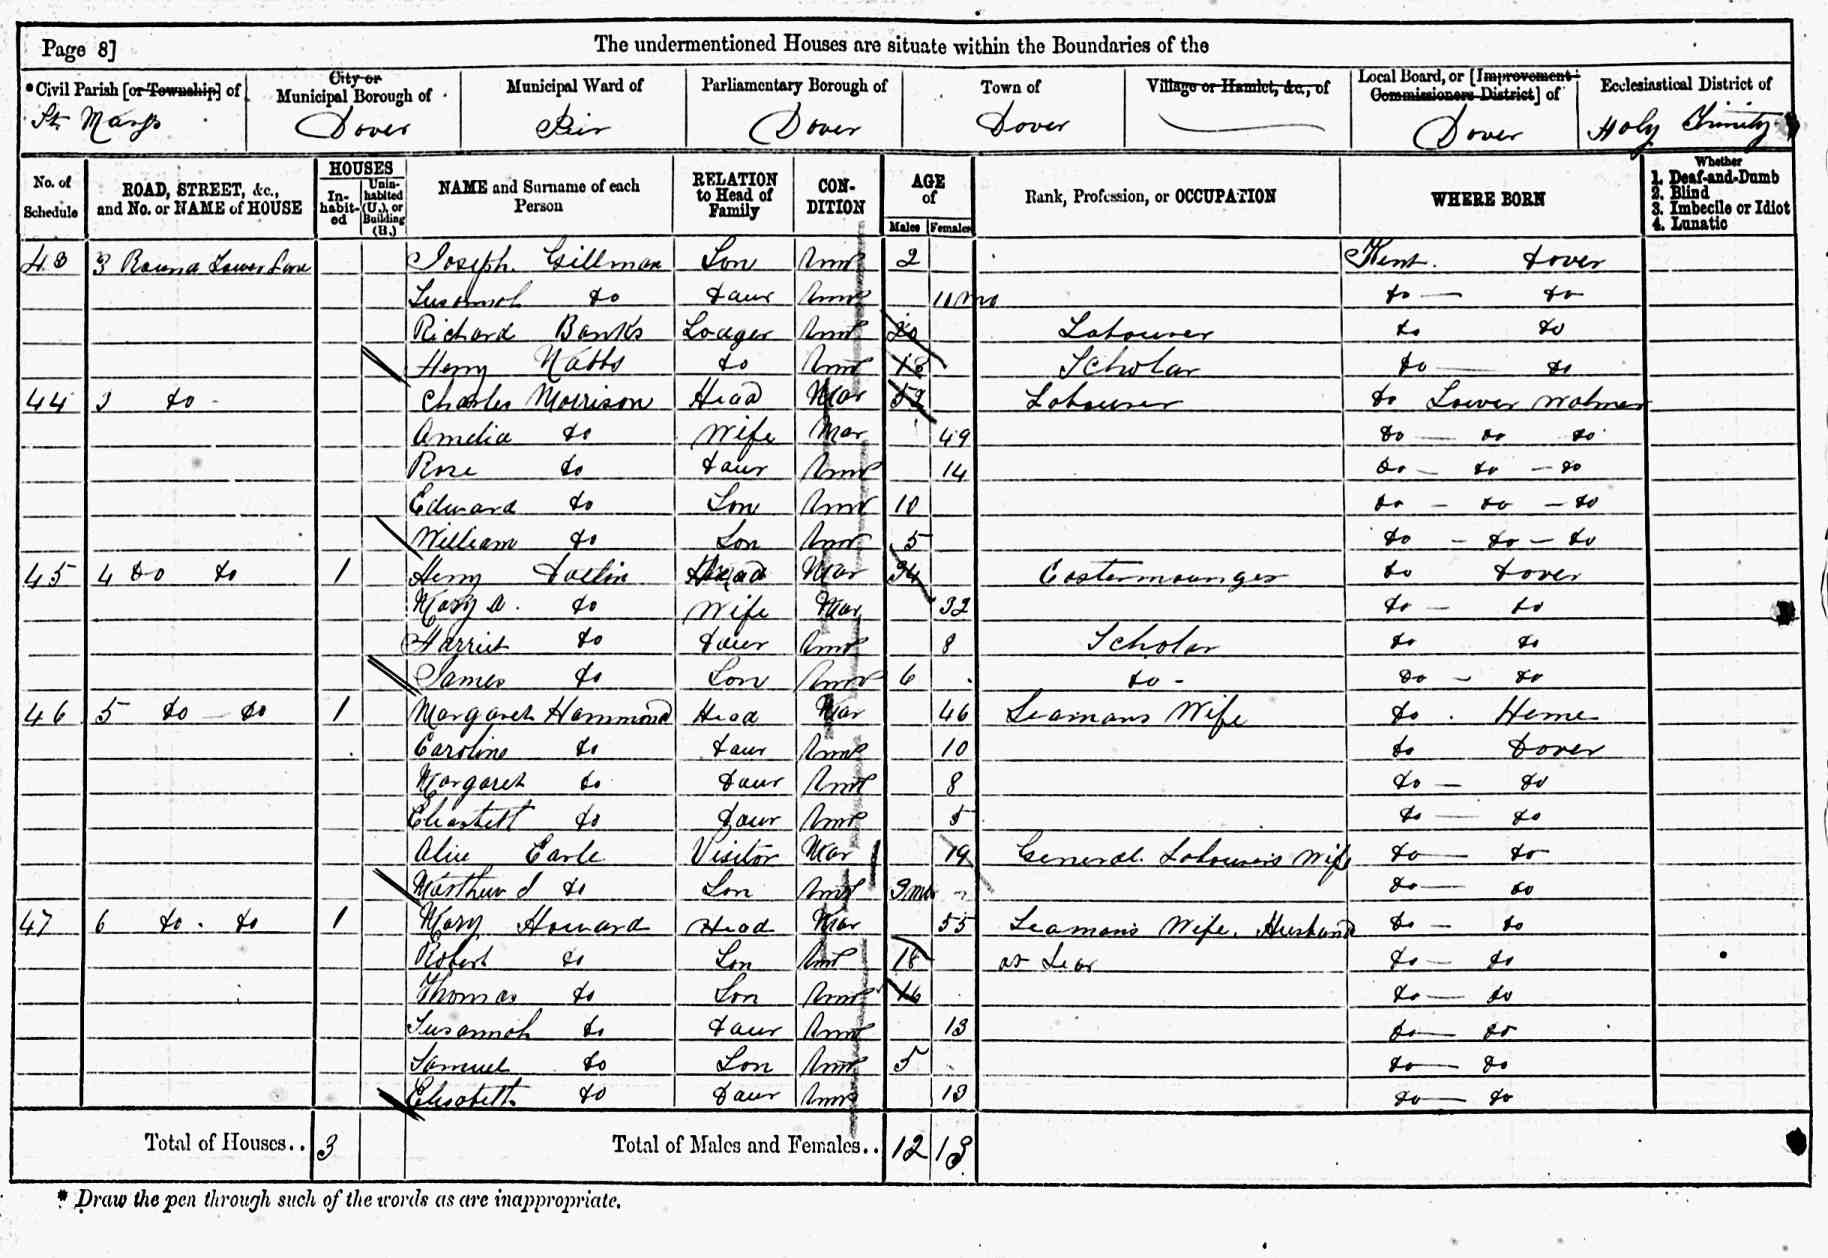 Page 8]
The undermentioned Houses are situate within the Boundaries of the
*Civil Parish [or Township] of
City or Municipal Borough of
Municipal Ward of
Parliamentary Borough of
Town of
Village or Hamlet, &c., of
Local Board, or [Improvement Commissioners District] of
Ecclesiastical District of
St Marys Dover Pier Dover Dover Dover Holy Trinity
No. of Schedule
ROAD, STREET, &c., and No. or NAME of HOUSE
HOUSES
In-habit-ed
Unin-habited (U.), or Building (B.)
NAME and Surname of each Person
RELATION to Head of Family
CON-DITION
AGE of
Males Females
Rank, Profession, or OCCUPATION
WHERE BORN
Whether
1. Deaf-and-Dumb
2. Blind
3. Imbecile or Idiot
4. Lunatic
43 3 Round Tower Lane Joseph Gillman Son Unm 2 Kent Dover
Susannah do Daur Unm 11 mo do do
Richard Banks Lodger Unm 20 Labourer do do
Henry Nabbs do Unm 18 Scholar do do
44 3 do Charles Morrison Head Mar 52 Labourer do Lower Walmer
Amelia do Wife Mar 49 do do do
Rose do Daur Unm 14 do do do
Edward do Son Unm 10 do do do
William do Son Unm 5 do do do
45 4 do do 1 Henry Head Mar 34 Costermounger do Dover
Mary A. do Wife Mar 32 do do
Harriet do Daur Unm 8 Scholar do do
James do Son Unm 6 do do do
46 5 do do 1 Margaret Hammond Head Mar 46 Seamans Wife do Herne
Caroline do Daur Unm 10 do Dover
Margaret do Daur Unm 8 do do
Elizabeth do Daur Unm 5 do do
Alice Earle Visitor Mar 19 General Labourers Wife do do
do Son Unm 9 mo do do
47 6 do do 1 Mary Howard Head Mar 55 Seamans Wife, Husband do do
Robert do Son Unm 18 at Sea do do
Thomas do Son Unm 16 do do
Susannah do Daur Unm 13 do do
Samuel do Son Unm 5 do do
Elisabeth do Daur Unm 13 do do
Total of Houses.. 3
Total of Males and Females.. 12 13
* Draw the pen through such of the words as are inappropriate.